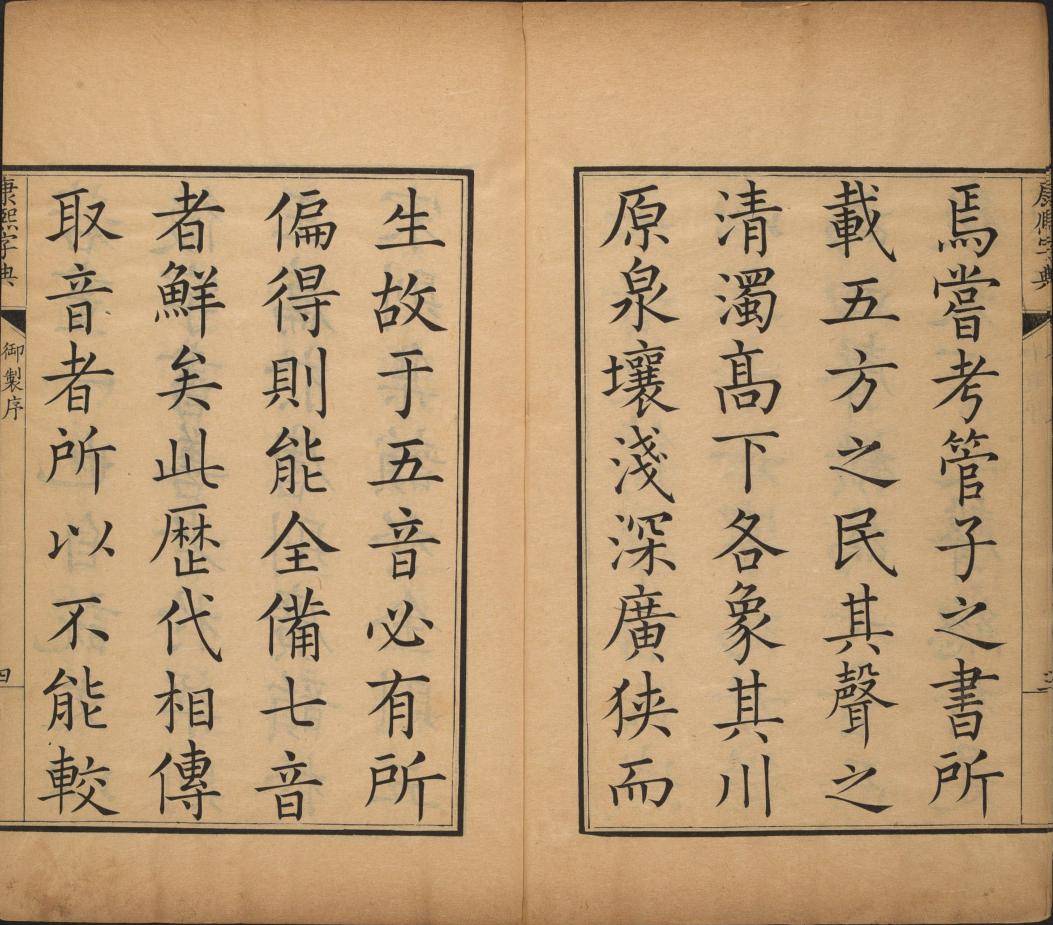 康熙字典
焉嘗考管子之書所
載五方之民其聲之
清濁高下各象其川
原泉壤淺深廣狹而
生故于五音必有所
偏得則能全備七音
者鮮矣此歷代相傳
取音者所以不能較
康熙字典
御製序
四